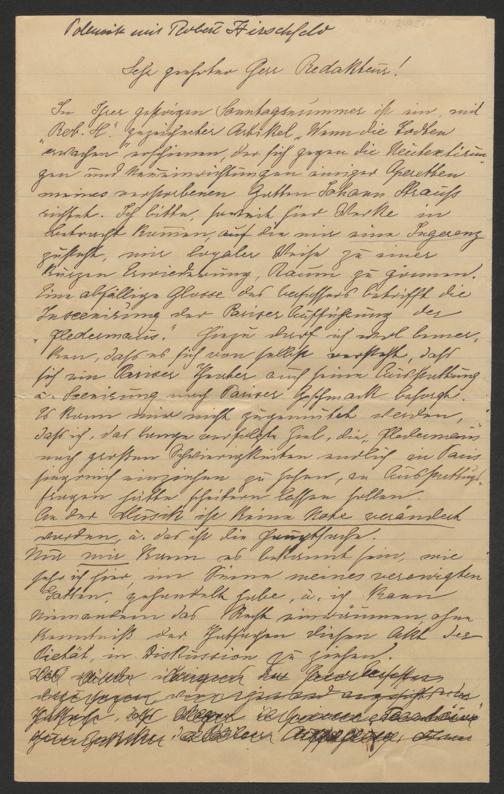 Polemik mit Robert Hirschfeld
Sehr geehrter Herr Redakteur!
In Ihrer gestrigen Sonntagsnummer ist ein, mit
„Rob. H." gezeichneter Artikel „Wenn die Todten
erwachen" erschienen, der sich gegen die Neutextirun-
gen und Neueinrichtungen einiger Operetten
meines verstorbenen Gatten Johann Strauss
richtet. Ich bitte, soweit hier Werke in
Betracht kommen, auf die mir eine Ingerenz
zusteht, mir loyaler Weise zu einer
kurzen Erwiederung, Raum zu gönnen.
Eine abfällige Glosse des Verfassers betrifft die
Inscenirung der Pariser Aufführung der
„Fledermaus." Hiezu darf ich wol bemer-
ken, dass es sich von selbst versteht, dass
sich ein Pariser Theater auch seine Ausstattung
u. Scenirung nach Pariser Geschmack besorgt.
Es kann mir nicht zugemutet werden,
dass ich, das lange verfolgte Ziel, die „Fledermaus
nach großen Schwierigkeiten endlich in Paris
siegreich einziehen zu sehen, an Ausstattungs-
fragen hätte scheitern lassen sollen.
An der Musik ist keine Note verändert
worden, u. das ist die Hauptsache.
Nur mir kann es bekannt sein, wie
sehr ich hier, im Sinne meines verewigten
Gatten, gehandelt habe, u. ich kann
niemandem das Recht einräumen, ohne
Kenntniß der Thatsachen diesen Akt der
Pietät, in Diskussion zu ziehen.